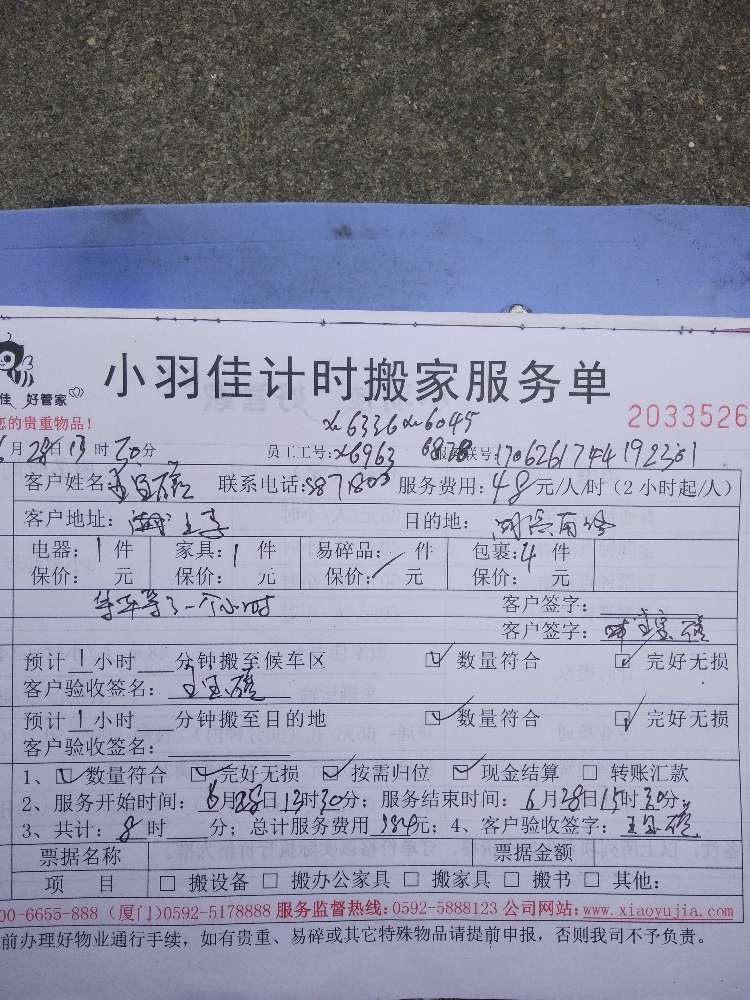 小羽佳计时搬家服务单
佳 好管家
您的贵重物品!
2033526
xn6336 xn6045
6月28日13时20分 员工工号:x6963 6878 服务联号:
客户姓名: 联系电话: 服务费用:48元/人/时(2小时起/人)
客户地址:湖 目的地:湖滨南路
电器:1件 家具:1件 易碎品: 件 包裹:4件
保价: 元 保价: 元 保价: 元 保价: 元
等车等了一个小时
客户签字:
客户签字:
预计1小时 分钟搬至候车区 ☑数量符合 ☑完好无损
客户验收签名:
预计1小时 分钟搬至目的地 ☑数量符合 ☑完好无损
客户验收签名:
1、☑数量符合 ☑完好无损 ☑按需归位 ☑现金结算 □转账汇款
2、服务开始时间:6月28日13时30分;服务结束时间:6月28日15时30分;
3、共计:8时 分;总计服务费用384元;4、客户验收签字:
票据名称 票据金额
项 目 □搬设备 □搬办公家具 □搬家具 □搬书 □其他:
00-6655-888 (厦门)0592-5178888 服务监督热线:0592-5888123 公司网站:www.xiaoyujia.com
前办理好物业通行手续,如有贵重、易碎或其它特殊物品请提前申报,否则我司不予负责。